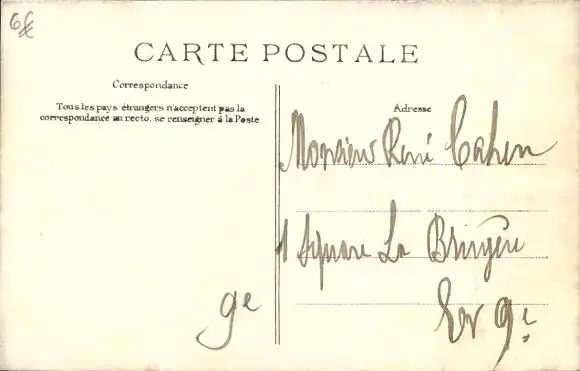 6f
CARTE POSTALE
Correspondance
Tous les pays étrangers n'acceptent pas la
correspondance au recto, se renseigner à la Poste
Adresse
Monsieur René Cahen
1 Square La Bruyère
9e
9e